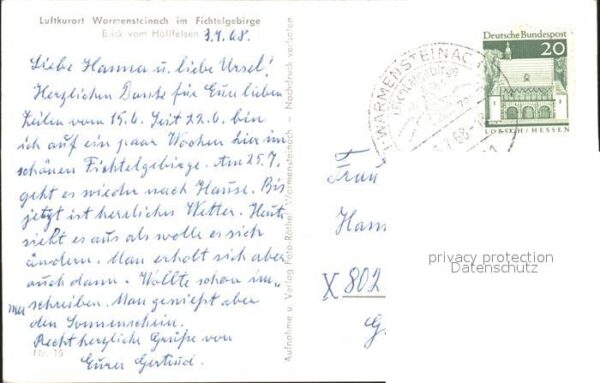 Luftkurort Warmensteinach im Fichtelgebirge
Blick vom Höllfelsen
3.7.68.
Liebe Hanna u. liebe Ursel!
Herzlichen Dank für Eure lieben
Zeilen vom 15.6. Seit 22.6. bin
ich auf ein paar Wochen hier im
schönen Fichtelgebirge. Am 25.7.
geht es wieder nach Hause. Bis
jetzt ist herrliches Wetter. Heute
sieht es aus als wolle es sich
ändern. Man erholt sich aber
auch dann. Wollte schon im-
mer schreiben. Man genießt aber
den Sonnenschein.
Recht herzliche Grüße von
Eurer Gertrud.
Nr. 19
Aufnahme u. Verlag Foto-Röthel, Warmensteinach – Nachdruck verboten
WARMENSTEINACH
Fichtelgebirge
Deutsche Bundespost
20
LORSCH / HESSEN
Frau
Han
X 802
G
privacy protection
Datenschutz